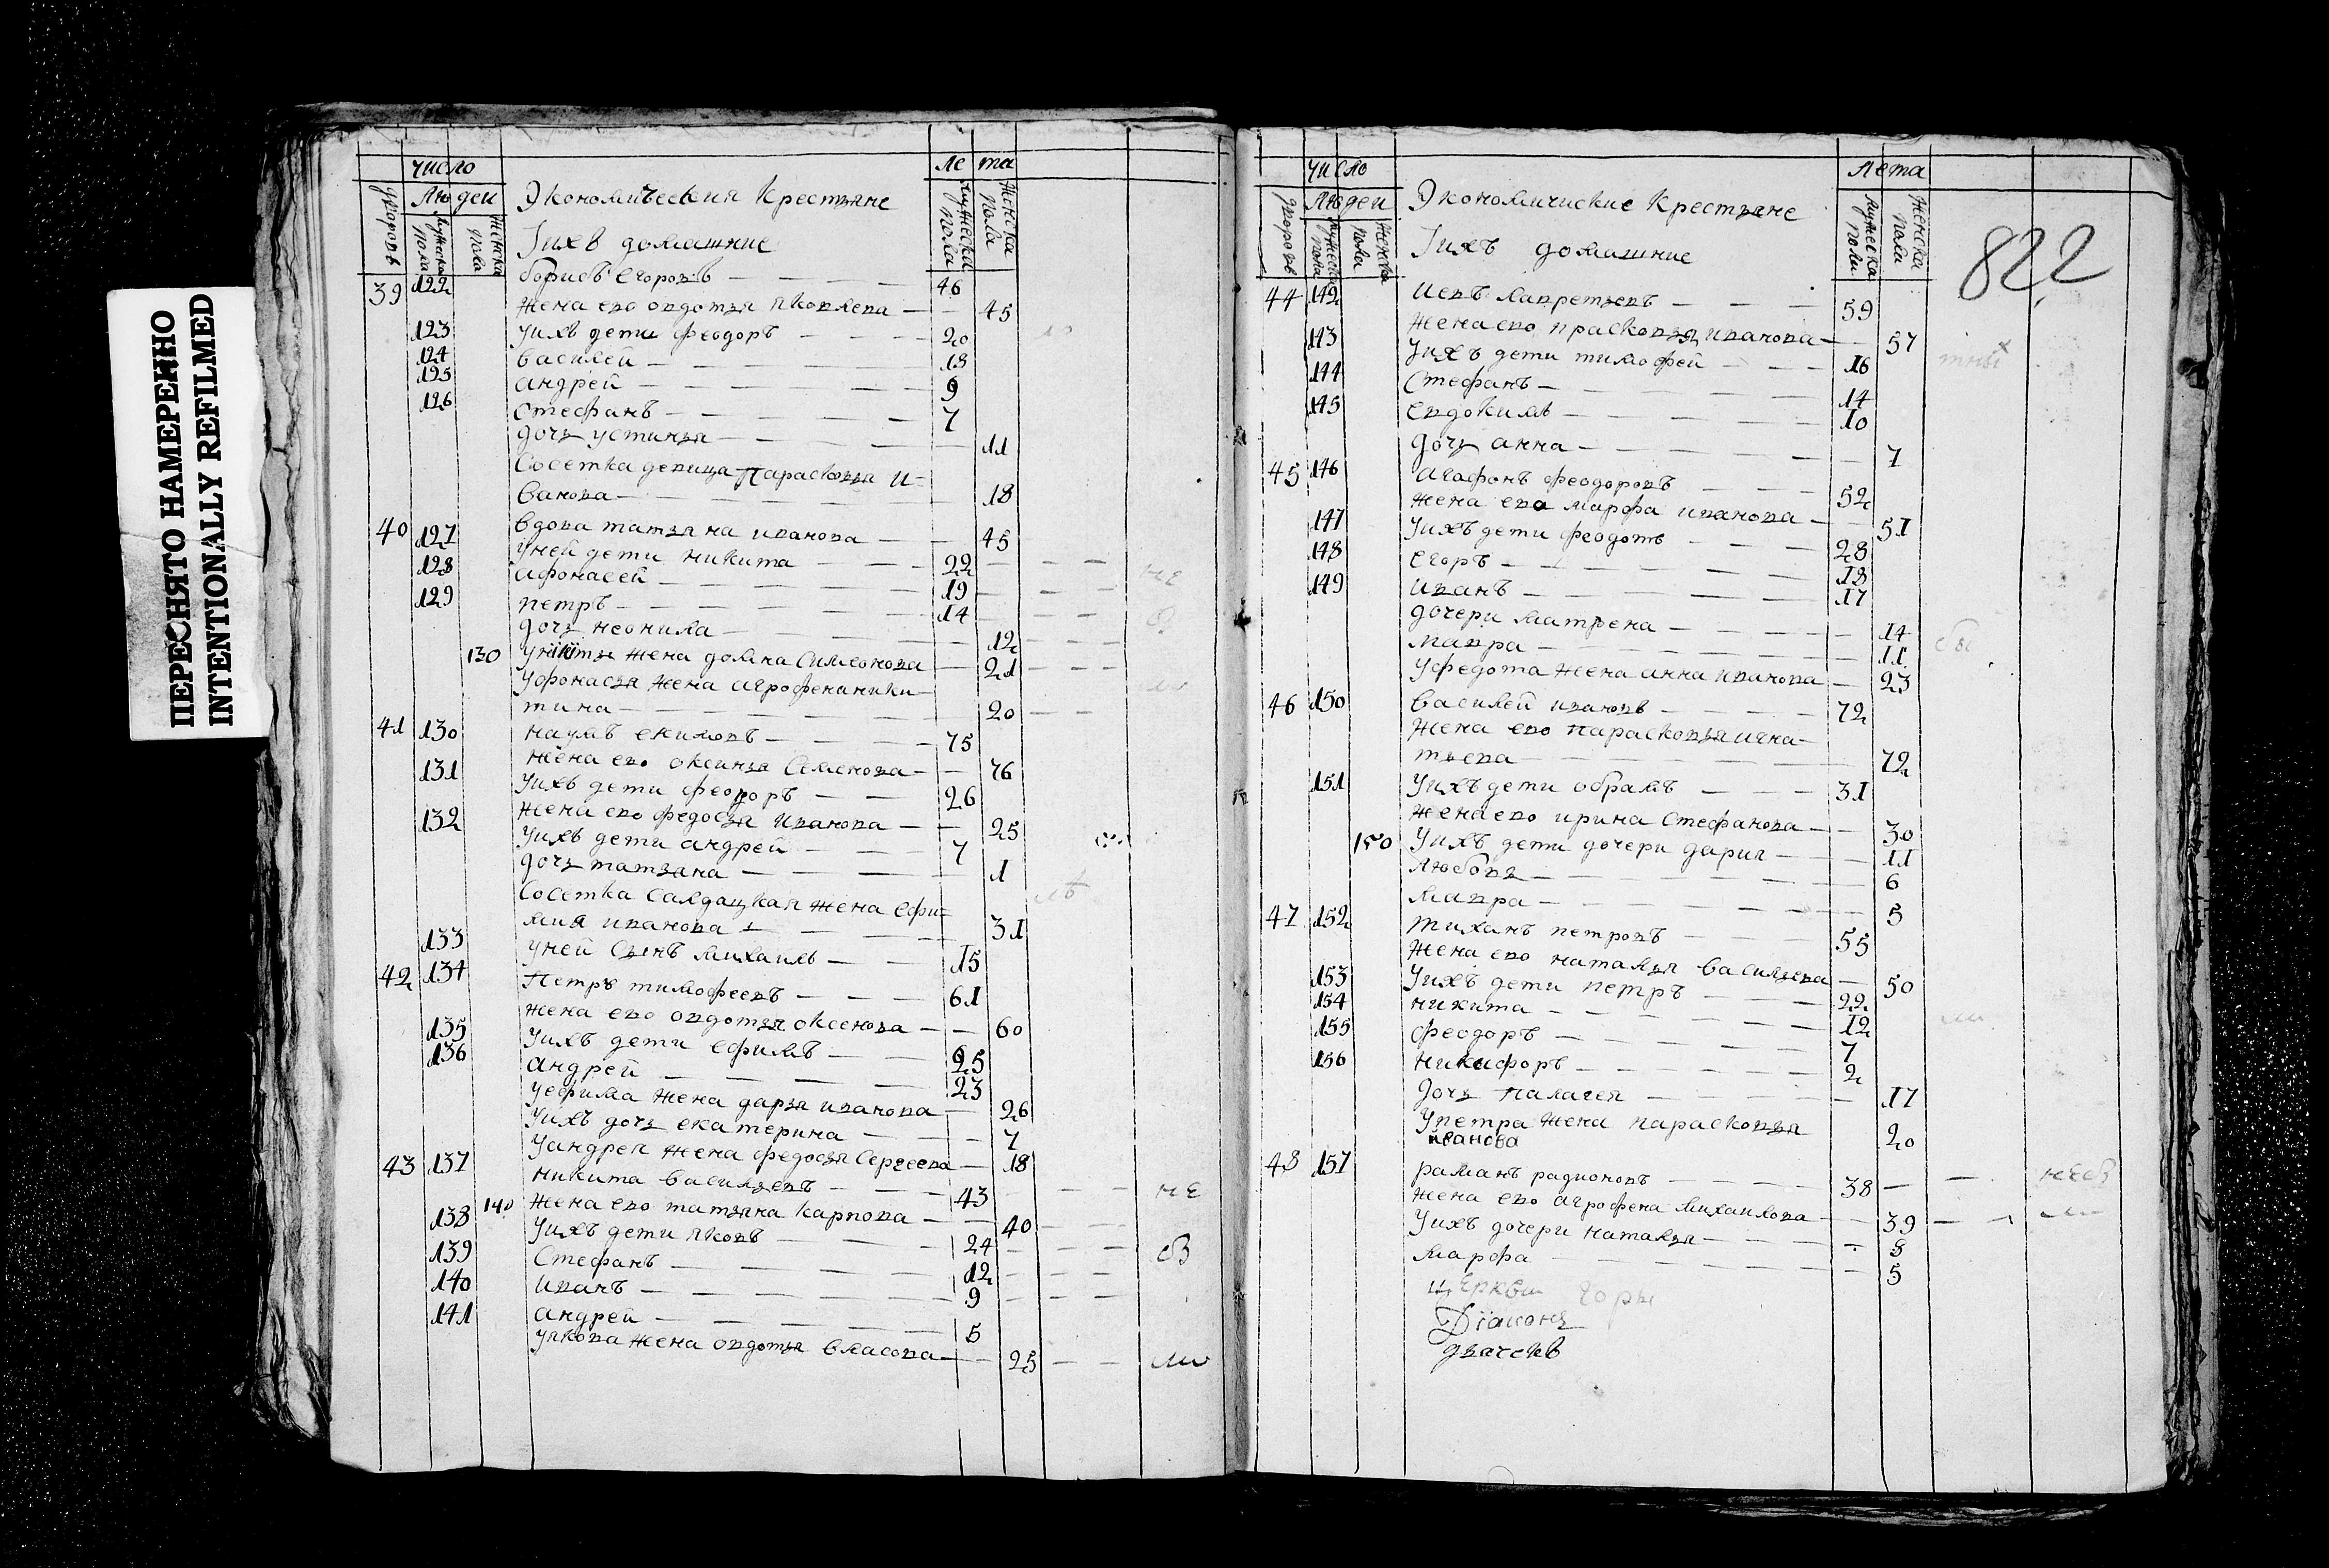 ПЕРЕСНЯТО НАМЕРЕННО
INTENTIONALLY REFILMED
число ле та
дворовъ Людеи Экономическия Крестьяне мужеска пола женска пола
мужеска пола женска пола Iихъ домашние
39 122 борисъ Егоровъ 46
жена ево овдотья яковлева 45
123 Уихъ дети феодоръ 20
124 василей 18
125 андрей 9
126 стефанъ 7
дочь устинья 11
Сосетка девица Парасковья И-
ванова 18
40 127 вдова татьяна иванова 45
Уней дети никита 22
128 афонасей 19
129 петръ 14
дочь неонила 12
130 Уникиты жена домна Симеонова 21
Уфонасья жена агрофена ники-
тина 20
41 130 наумъ екимовъ 75
жена ево оксинья Семенова 76
131 Уихъ дети феодоръ 26
жена ево федосья Иванова 25
132 Уихъ дети андрей 7
дочь татьяна 1
Сосетка Салдацкая жена Ефи-
мия иванова 31
133 Уней Сынъ михаилъ 15
42 134 Петръ тимофеевъ 61
жена ево овдотья оксенова 60
135 Уихъ дети ефимъ 25
136 андрей 23
Уефима жена дарья иванова 26
Уихъ дочь екатерина 7
Уандрея жена федосья Сергеева 18
43 137 никита васильевъ 43
140 жена ево татьяна карпова 40
138 Уихъ дети яковъ 24
139 Стефанъ 12
140 иванъ 9
141 андрей 5
Уякова жена овдотья власова 25
число лета
дворовъ Людеи Экономичиские Крестьяне мужеска полу женска полу
мужеска пола женска пола Iихъ домашние
822
44 142 иевъ лаврентьевъ 59
жена ево прасковья иванова 57
143 Уихъ дети тимофей 16
144 Стефанъ 14
145 евдокимъ 10
дочь анна 7
45 146 агафонъ феодоровъ 52
жена ево марфа иванова 51
147 Уихъ дети феодотъ 28
148 егоръ 18
149 иванъ 17
дочери матрена 14
мавра 11
Уфедота жена анна иванова 23
46 150 василей ивановъ 72
жена ево парасковья игна-
тьева 72
151 Уихъ дети обрамъ 31
жена ево ирина Стефанова 30
150 Уихъ дети дочери дария 11
любовь 6
мавра 3
47 152 тиханъ петровъ 55
жена ево наталья васильева 50
153 Уихъ дети петръ 22
154 никита 12
155 феодоръ 7
156 никифоръ 2
дочь палагея 17
Упетра жена парасковья
иванова 20
48 157 раманъ радионовъ 38
жена ево агрофена михаилова 39
Уихъ дочери наталья 8
марфа 5
церкви
Дiаконъ